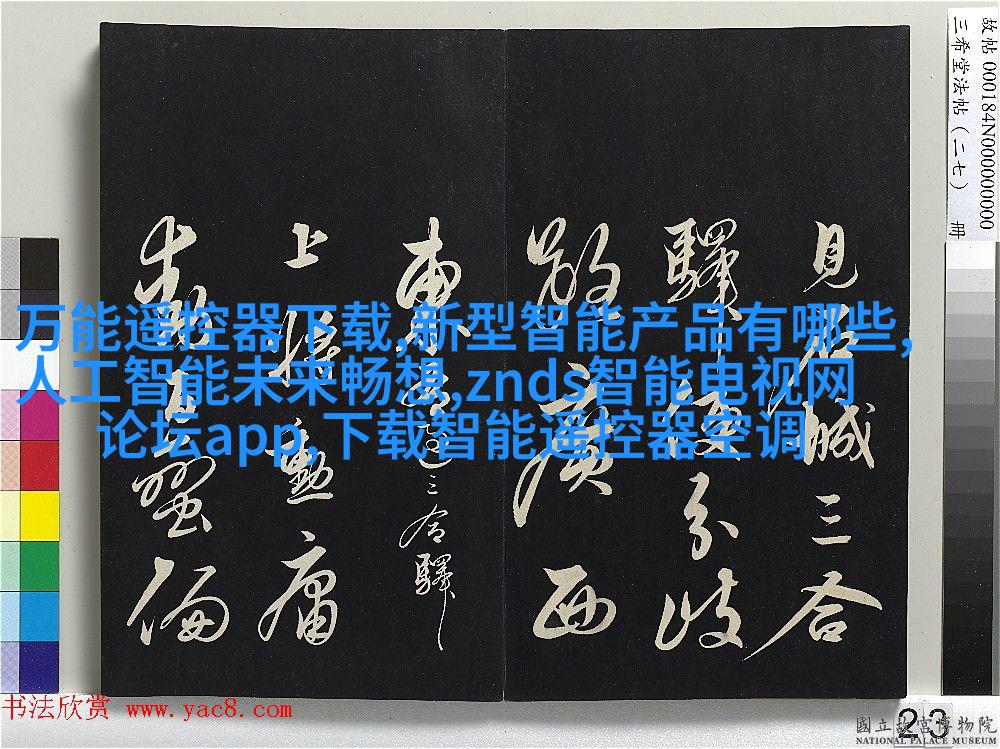 故帖 000184N000000000
三希堂法帖（二七） 册
見石城三合
驛使分歧
散廣西
南
三合驛
上將勳庸
万能遥控器下载,新型智能产品有哪些,
人工智能未来畅想,znds智能电视网
论坛app,下载智能遥控器空调
书法欣赏 www.yac8.com
23
國立故宮博物院
NATIONAL PALACE MUSEUM